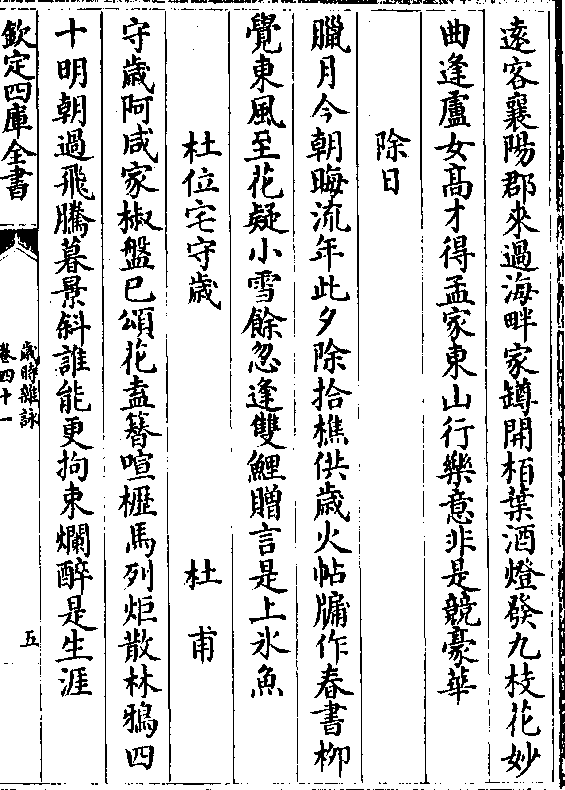 遠客襄陽郡來過海畔家罇開栢葉酒燈發九枝花妙
曲逢盧女髙才得孟家東山行樂意非是競豪華
除日
臘月今朝晦流年此夕除拾樵供歳火帖牖作春書柳
覺東風至花疑小雪餘忽逢雙鯉贈言是上氷魚
杜位宅守歳 杜甫
守歳阿咸家椒盤已頌花盍簪喧櫪馬列炬散林鴉四
十明朝過飛騰暮景斜誰能更拘束爛醉是生涯
欽定四庫全書
歳時雜詠
卷四十一
五